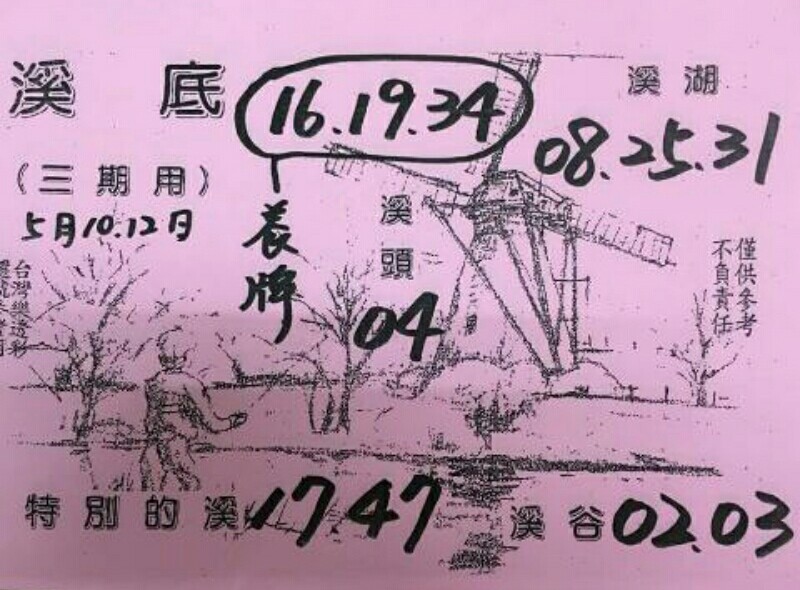 溪底
16.19.34
溪湖
08.25.31
(三期用)
5月10.12日
養牌
溪頭
04
僅供參考
不負責任
台灣樂透彩
特別的溪 17 47
溪谷 02.03